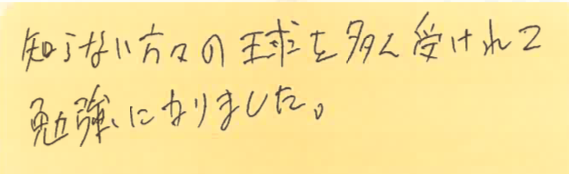 知らない方々の球を多く受けれて
勉強になりました。